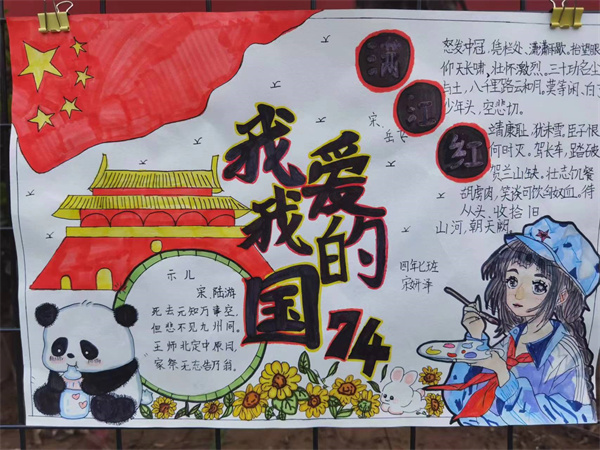 我爱
我的
国
74
满江红
宋、
岳飞
怒发中冠，凭栏处、潇潇雨歇。抬望眼
仰天长啸，壮怀激烈。三十功名尘
与土，八千里路云和月。莫等闲、白了
少年头，空悲切。
靖康耻，犹未雪。臣子恨
何时灭。驾长车，踏破
贺兰山缺。壮志饥餐
胡虏肉，笑谈可饮匈奴血。待
从头、收拾旧
山河，朝天阙
四年七班
宋妍泽
示儿
宋.陆游
死去元知万事空，
但悲不见九州同。
王师北定中原日，
家祭无忘告乃翁。